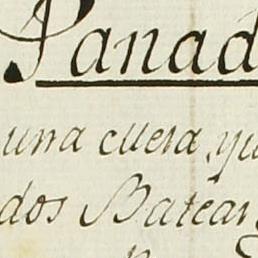 Panad
una cueva, qu
dos Balear